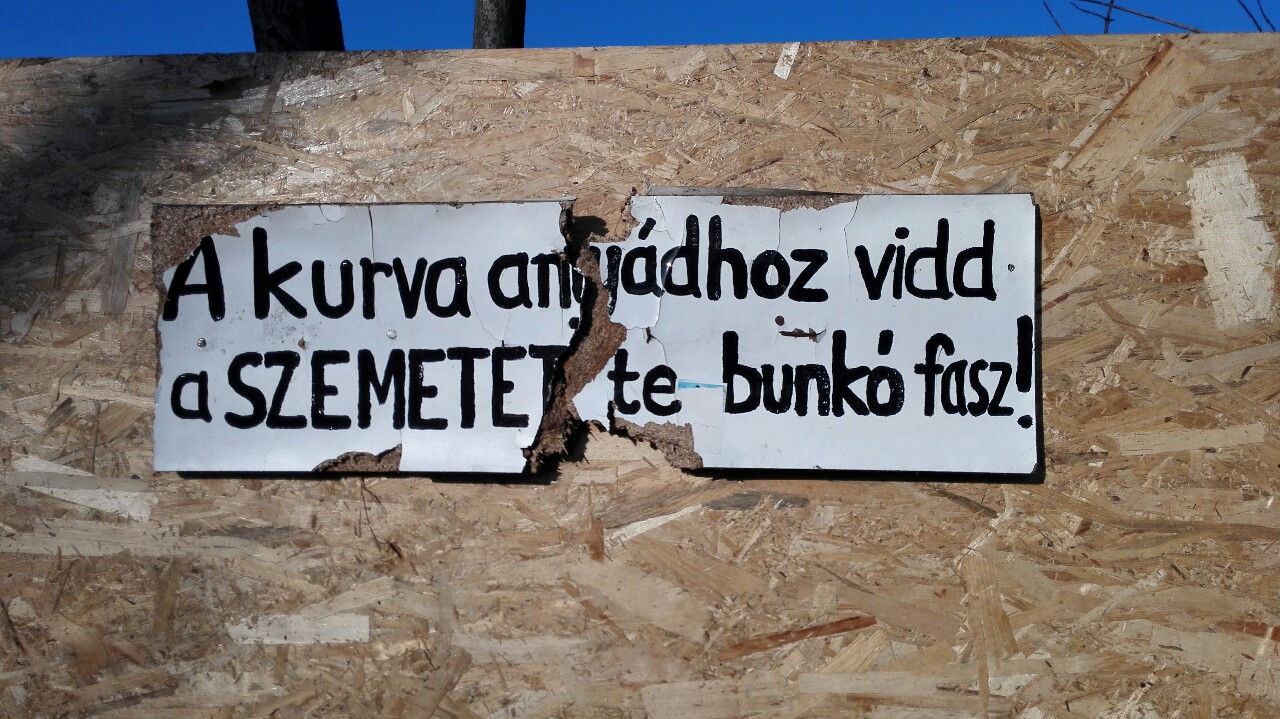 A kurva anyádhoz vidd
a SZEMETET te bunkó fasz!